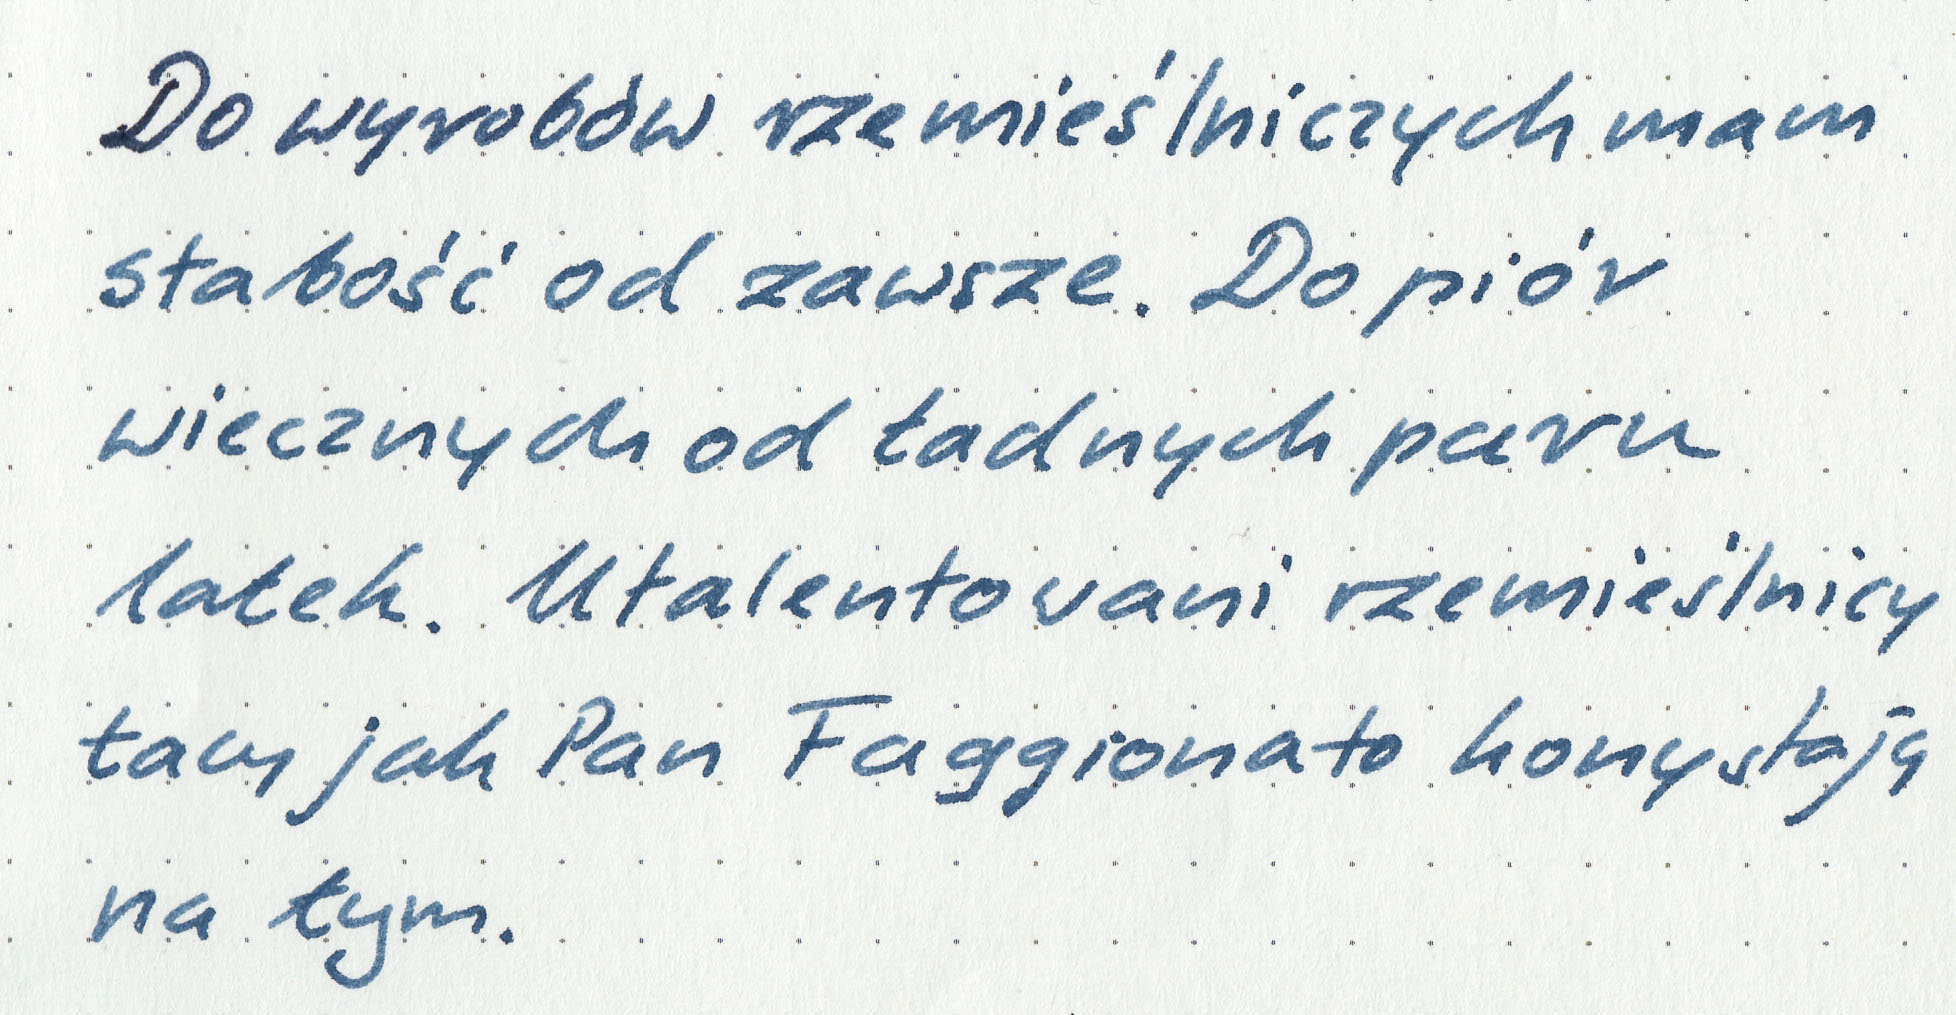 Do wyrobów rzemieślniczych mam
słabość od zawsze. Do piór
wiecznych od ładnych paru
latek. Utalentowani rzemieślnicy
tacy jak Pan Faggionato korzystają
na tym.